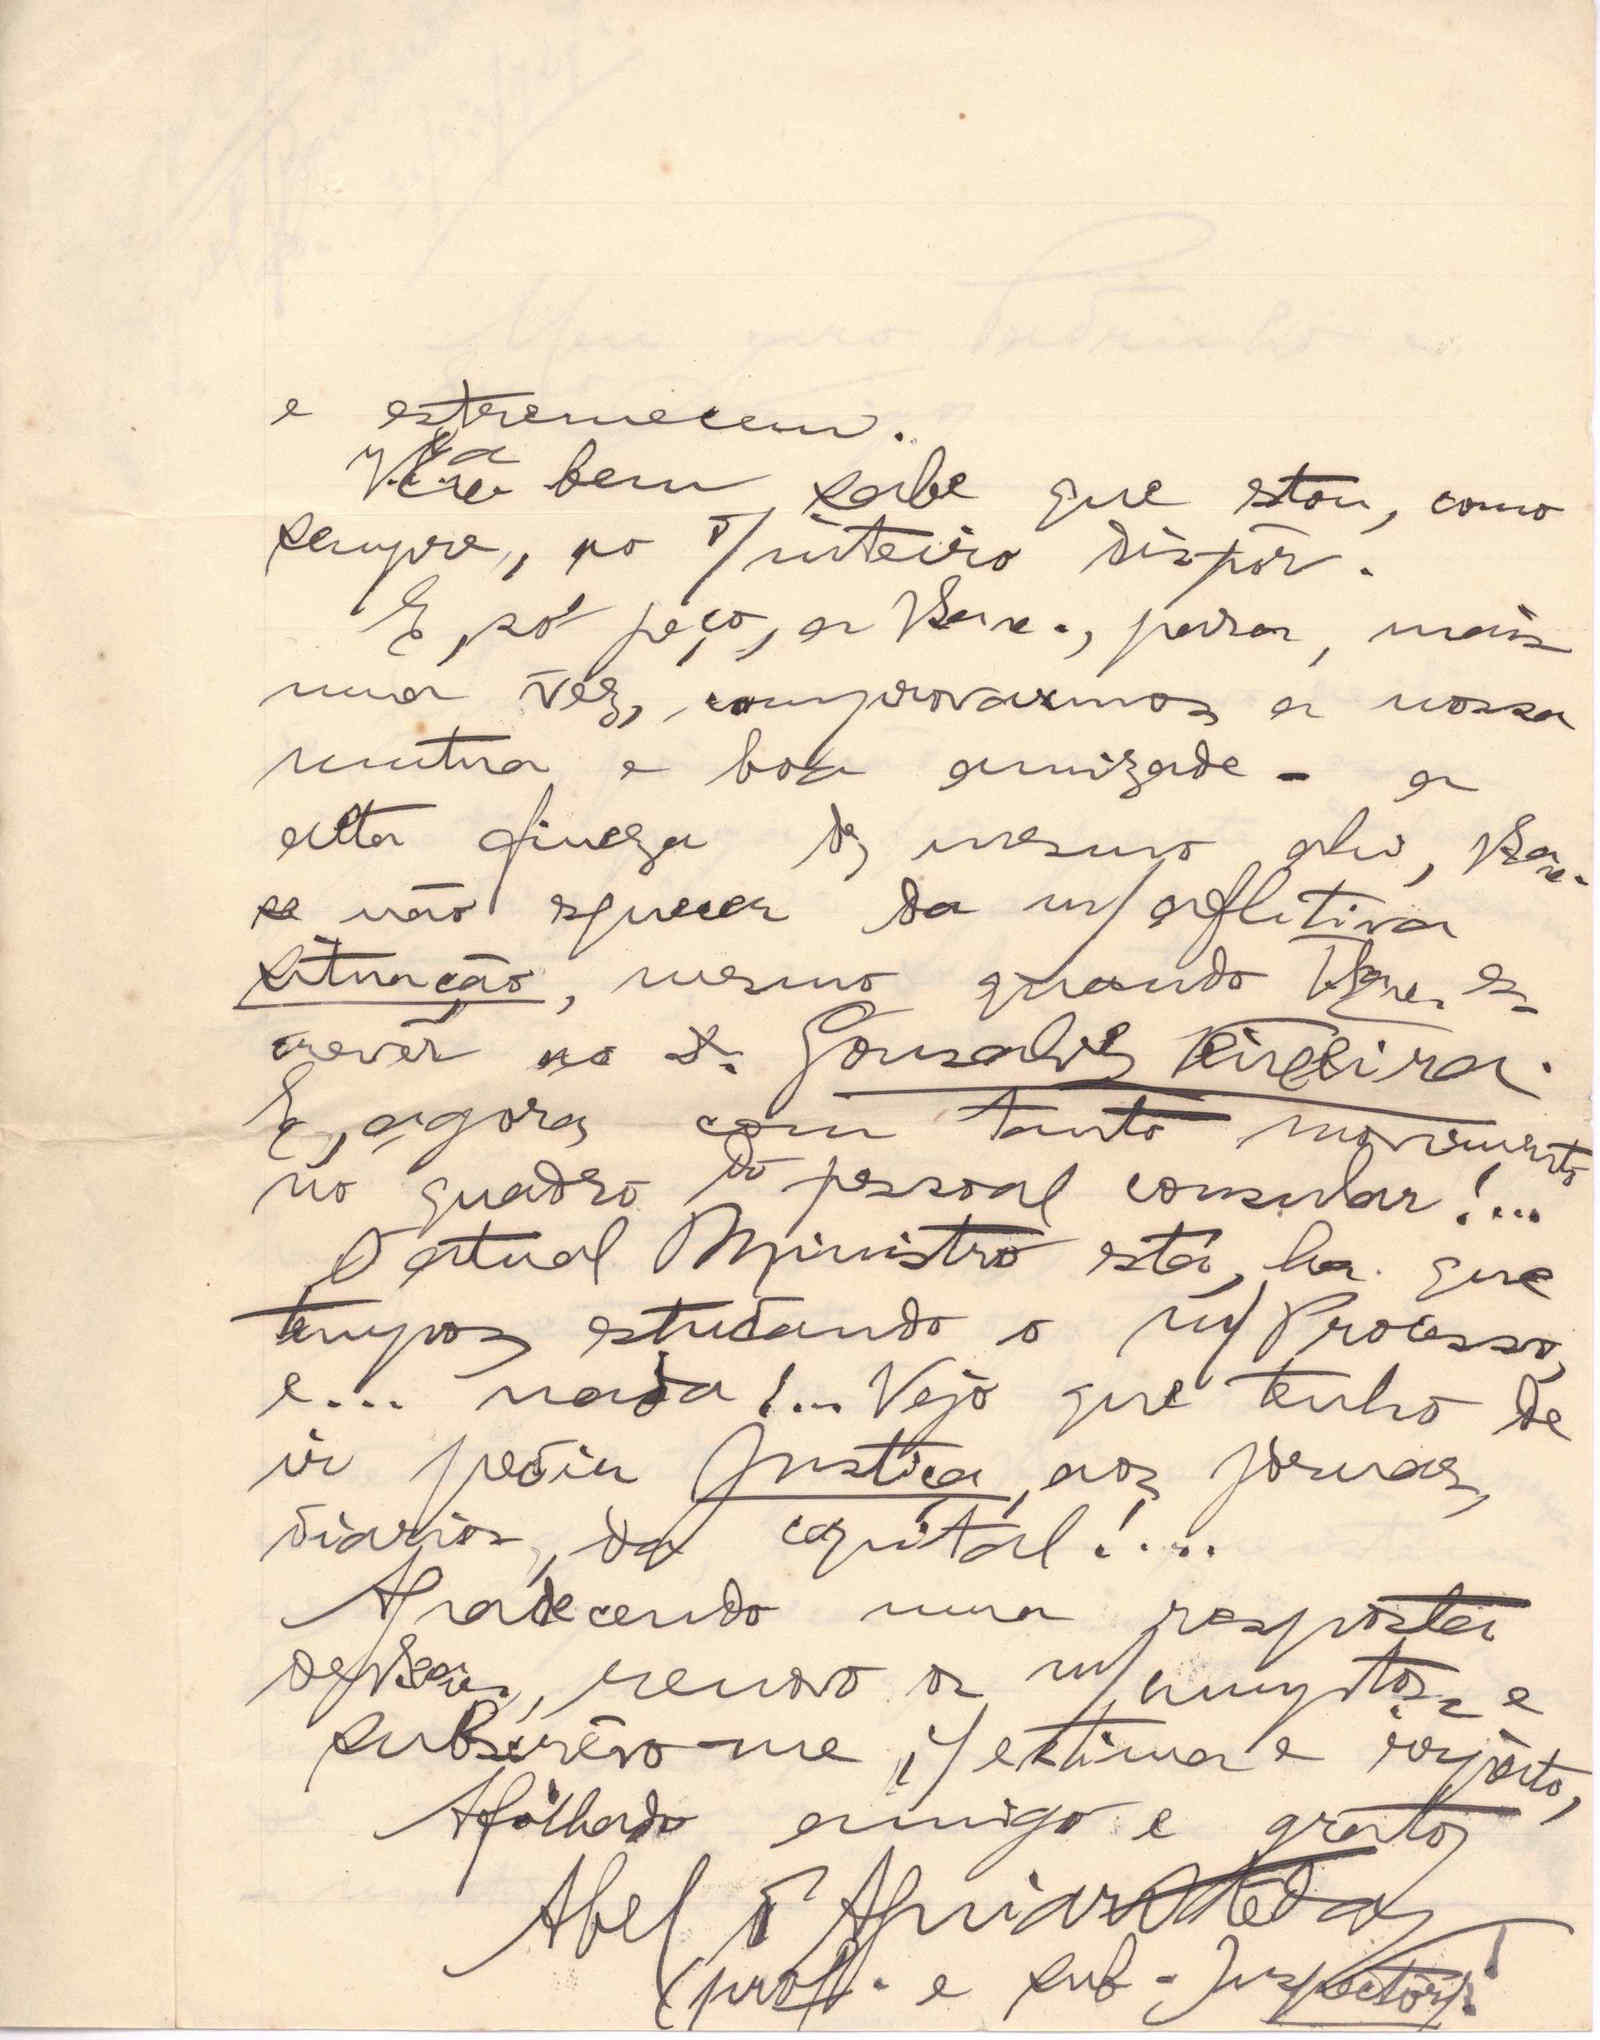 e estremecem.
bem sabe que estou, como
sempre, ao s/ inteiro dispôr.
E, só peço, a V.Exª., para, mais
uma vez, comprovarmos a nossa
mutua e boa amizade - a
alta fineza de mesmo ahi, V.Exª.
se não esquecer da m/ aflitiva
situação, mesmo quando V.Exª. es-
crever ao dr. Gonsalves Teixeira.
E, agora com tanto movimento
no quadro do pessoal consular!...
O atual Ministro está, ha que
tempos estudando o m/ Processo,
e... nada!... Vejo que tenho de
ir pedir Justica, aos jornaes,
diarios, da capital!....
Agradecendo uma resposta
de V.Exª., renovo os m/ cumptos. e
subscrêvo-me, c/ estima e respeito,
Afilhado amigo e grato
Abel d'
(prof. e sub-Inspector).